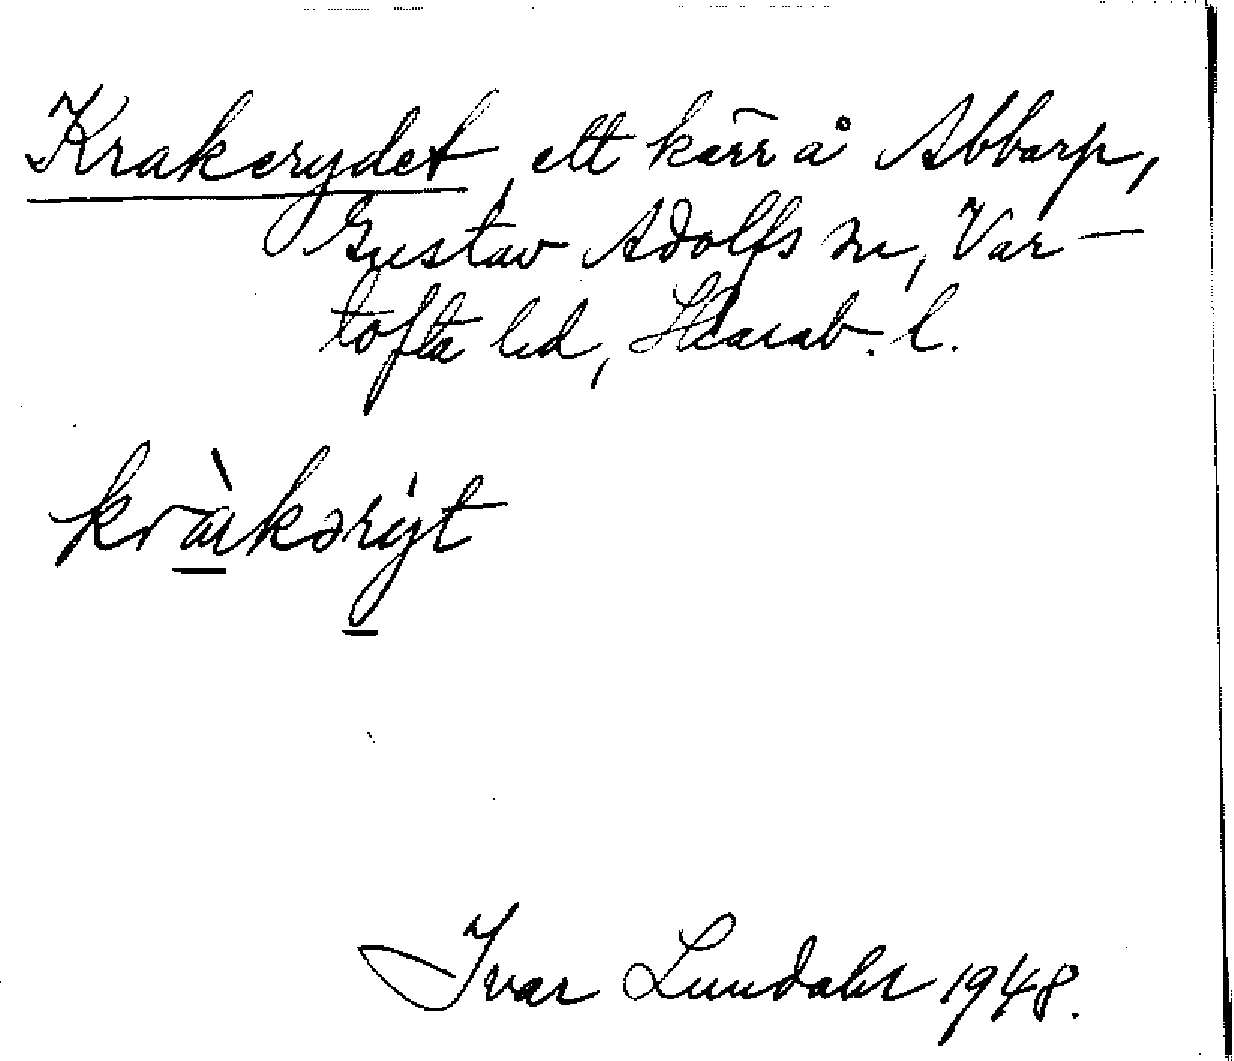 Krakerydet, ett kärr å Abbarp,
Gustav Adolfs sn, Var-
tofta hd, Skarab. l.
krὰkərẏt
Ivar Lundahl 1948.